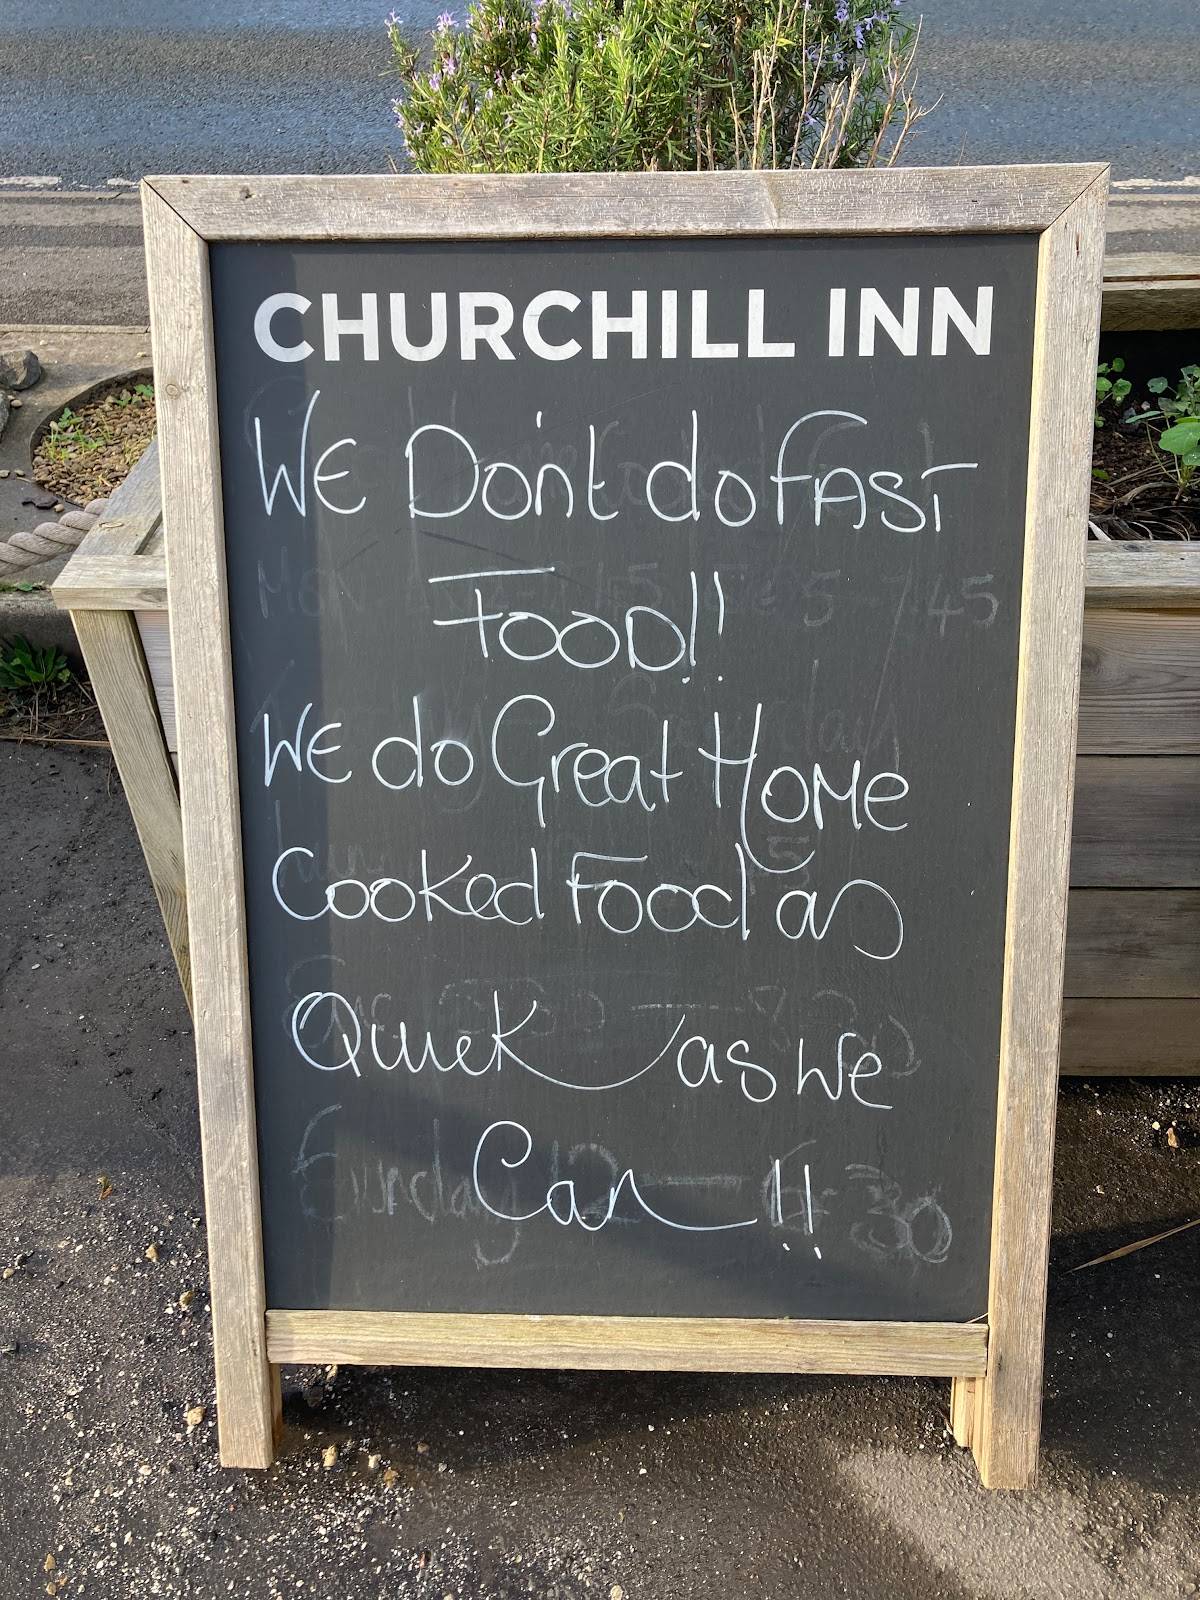 CHURCHILL INN
WE Don't do FAST
FOOD!!
WE do Great HOME
Cooked Food as
Quick as We
Can !!